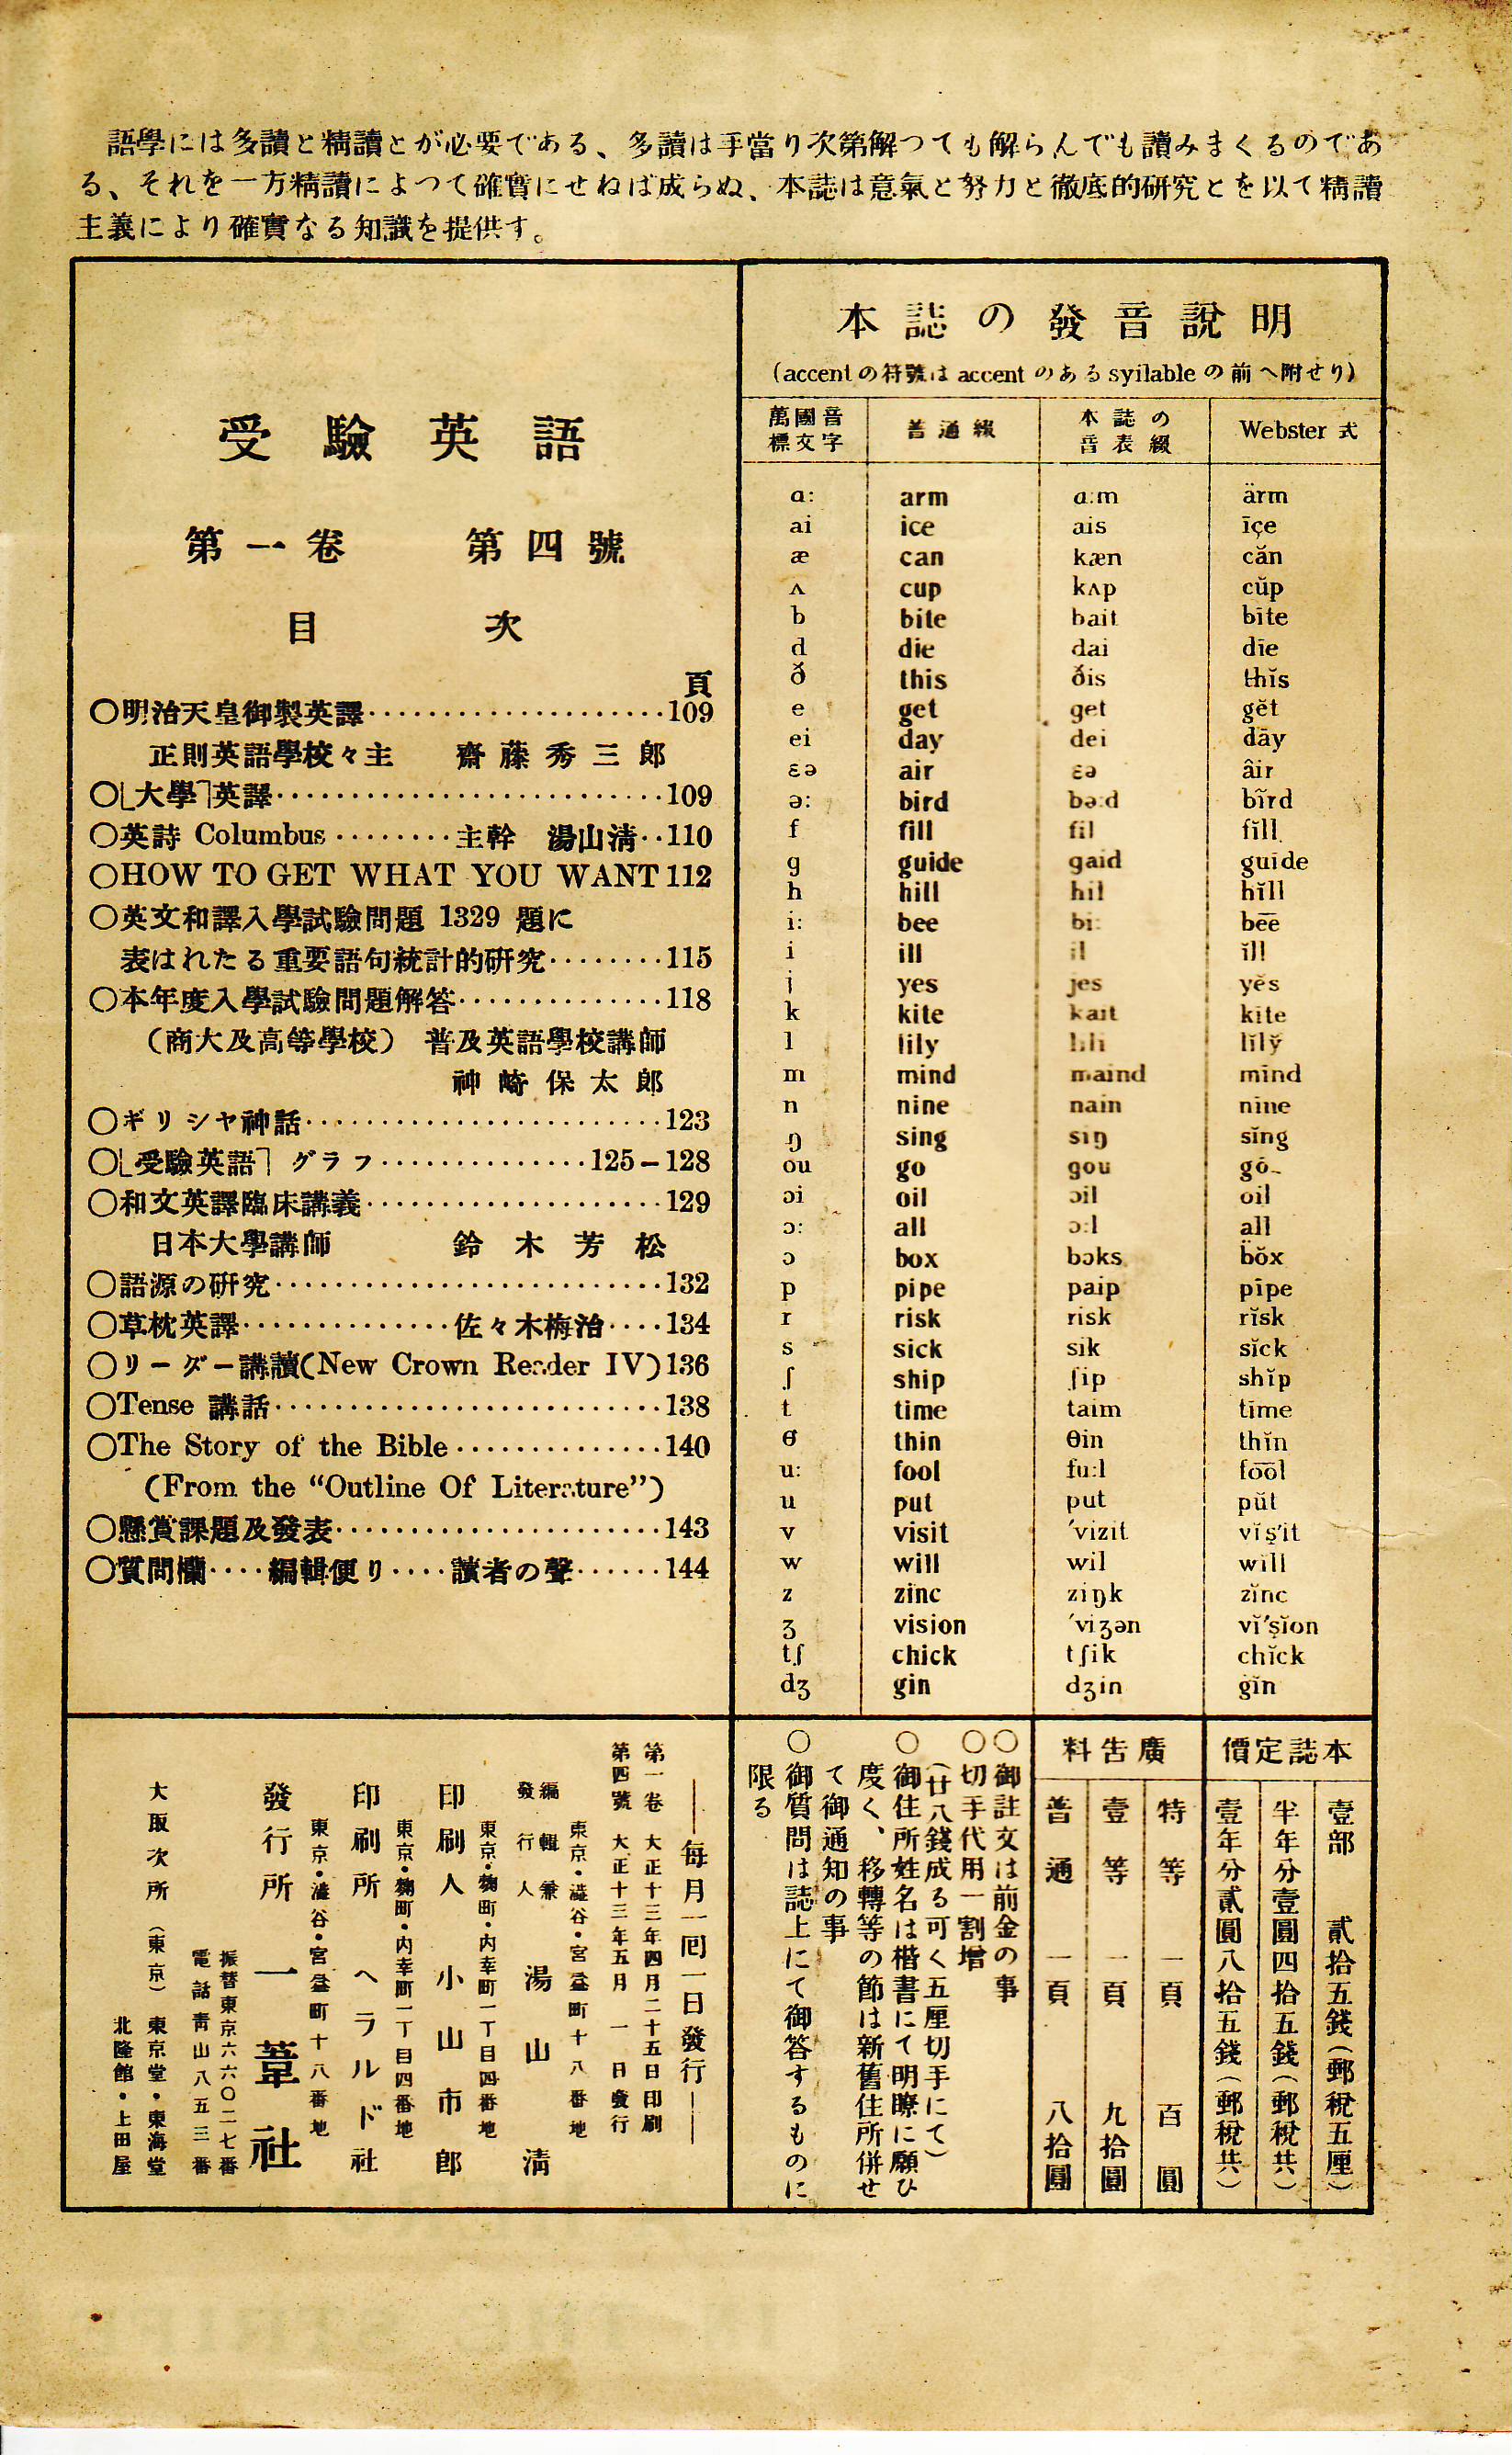 語學には多讀と精讀とが必要である、多讀は手當り次第解つても解らんでも讀みまくるのであ
る、それを一方精讀によつて確實にせねば成らぬ、本誌は意氣と努力と徹底的硏究とを以て精讀
主義により確實なる知識を提供す。
受驗英語
第一卷 第四號
目次
頁
〇明治天皇御製英譯····················109
正則英語學校々主 齋藤秀三郎
〇「大學」英譯··························109
〇英詩 Columbus········主幹 湯山淸··110
〇HOW TO GET WHAT YOU WANT 112
〇英文和譯入學試驗問題 1329 題に
表はれたる重要語句統計的硏究········115
〇本年度入學試驗問題解答··············118
(商大及高等學校) 普及英語學校講師
神崎保太郎
〇ギリシヤ神話························123
〇「受驗英語」グラフ··············125–128
〇和文英譯臨床講義····················129
日本大學講師 鈴木芳松
〇語源の硏究··························132
〇草枕英譯··············佐々木梅治····134
〇リーダー講讀(New Crown Reader IV)136
〇Tense 講話··························138
〇The Story of the Bible··············140
(From the “Outline Of Literature”)
〇懸賞課題及發表······················143
〇質問欄····編輯便り····讀者の聲······144
本誌の發音說明
(accentの符號は accent のある syilable の前へ附せり)
萬國音標文字 普通綴 本誌の音表綴 Webster 式
ɑ: arm ɑ:m ärm
ai ice ais īçe
æ can kæn căn
ʌ cup kʌp cŭp
b bite bait bīte
d die dai dīe
ð this ðis thĭs
e get get gĕt
ei day dei dāy
ɛə air ɛə âir
ə: bird bə:d bĩrd
f fill fil fĭll
g guide gaid guīde
h hill hil hĭll
i: bee bi: bēē
i ill il ĭll
j yes jes yĕs
k kite kait kīte
l lily lili lĭlў
m mind maind mīnd
n nine nain nīne
ŋ sing siŋ sĭng
ou go gou gō
ɔi oil ɔil oil
ɔ: all ɔ:l all
ɔ box bɔks bŏx
p pipe paip pīpe
r risk risk rĭsk
s sick sik sĭck
ʃ ship ʃip shĭp
t time taim tīme
θ thin θin thĭn
u: fool fu:l fo͞ol
u put put pŭt
v visit ′vizit vĭṣ′it
w will wil wĭll
z zinc ziŋk zĭnc
ʒ vision ′viʒən vĭ′ṣĭon
tʃ chick tʃik chĭck
dʒ gin dʒin ġĭn
本誌定價
壹部 貳拾五錢(郵稅五厘)
半年分壹圓四拾五錢(郵稅共)
壹年分貳圓八拾五錢(郵稅共)
廣吿料
特等 一頁 百圓
壹等 一頁 九拾圓
普通 一頁 八拾圓
〇御註文は前金の事
〇切手代用一割增
(廿八錢成る可く五厘切手にて)
〇御住所姓名は楷書にて明瞭に願ひ
度く、移轉等の節は新舊住所併せ
て御通知の事
〇御質問は誌上にて御答するものに
限る
――每月一囘一日發行――
第一卷 大正十三年四月二十五日印刷
第四號 大正十三年五月一日發行
東京・澁谷・宮益町十八番地
編輯兼
發行人 湯山淸
東京・麴町・內幸町一丁目四番地
印刷人 小山市郎
東京・麴町・內幸町一丁目四番地
印刷所 ヘラルド社
東京・澁谷・宮益町十八番地
發行所 一葦社
振替東京六六〇二七番
電話靑山八五三番
大取次所 (東京) 東京堂・東海堂
北隆館・上田屋